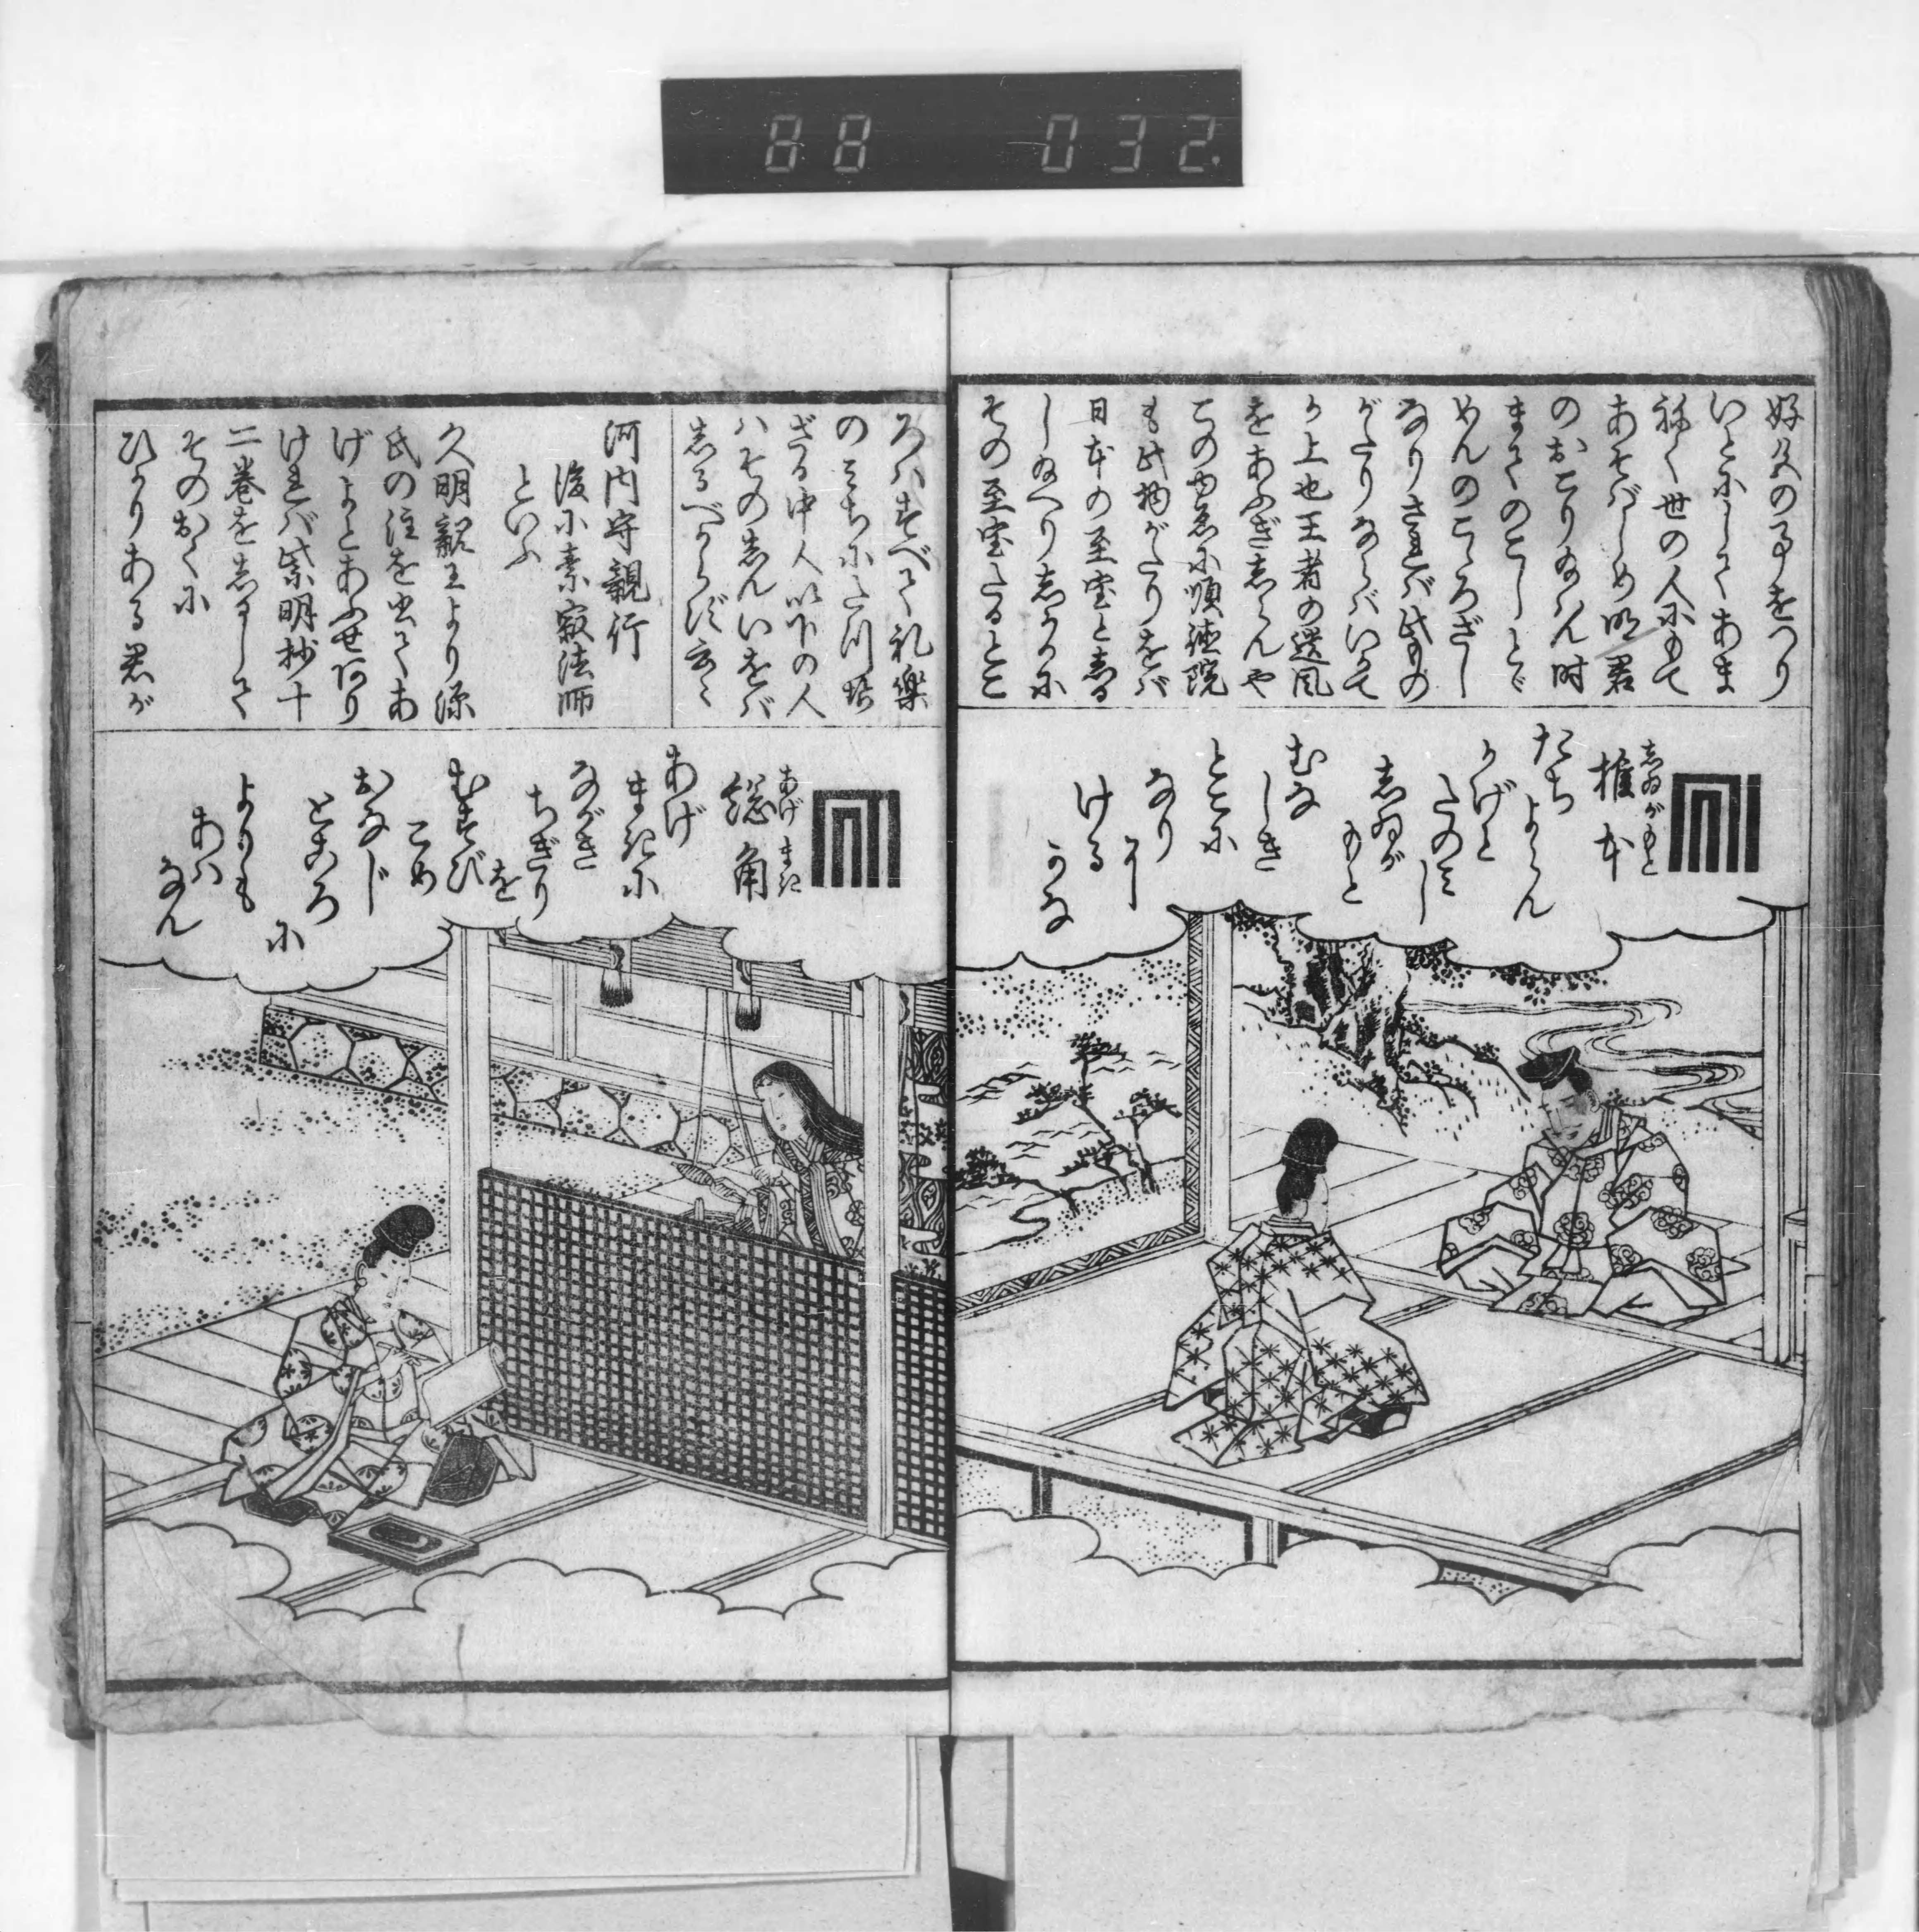 88 032
好色の事をつり
いとふしてあま
ねく世の人にもて
あそばしめ明君
のおこりなん時
まさくのこしとゞ
めんのこゝろざし
なりされバ此もの
がたりならバいかで
か上也王者の遺風
をあふぎしらんや
このゆゑに順徳院
も此物がたりをバ
日本の至宝としる
し給へりしかるに
その至宝たるとこ
しゐがもと
椎本
たち
よらん
かげと
たのミ
し
しゐが
もと
むな
しき
とこに
なり
に
ける
かな
ろハすべて礼楽
のミちに
ざる中人以下の人
ハその志んいをバ
志るべからず云々
河内守親行
後に素寂法師
といふ
久明親王より源
氏の注を出てあ
げよとあふせ有り
けれバ紫明抄十
二巻を志るして
そのおくに
ひかりある君が
あげまき
総角
あげ
まきに
ながき
ちぎり
を
むすび
こめ
おなじ
ところ
に
よりも
あハ
なん